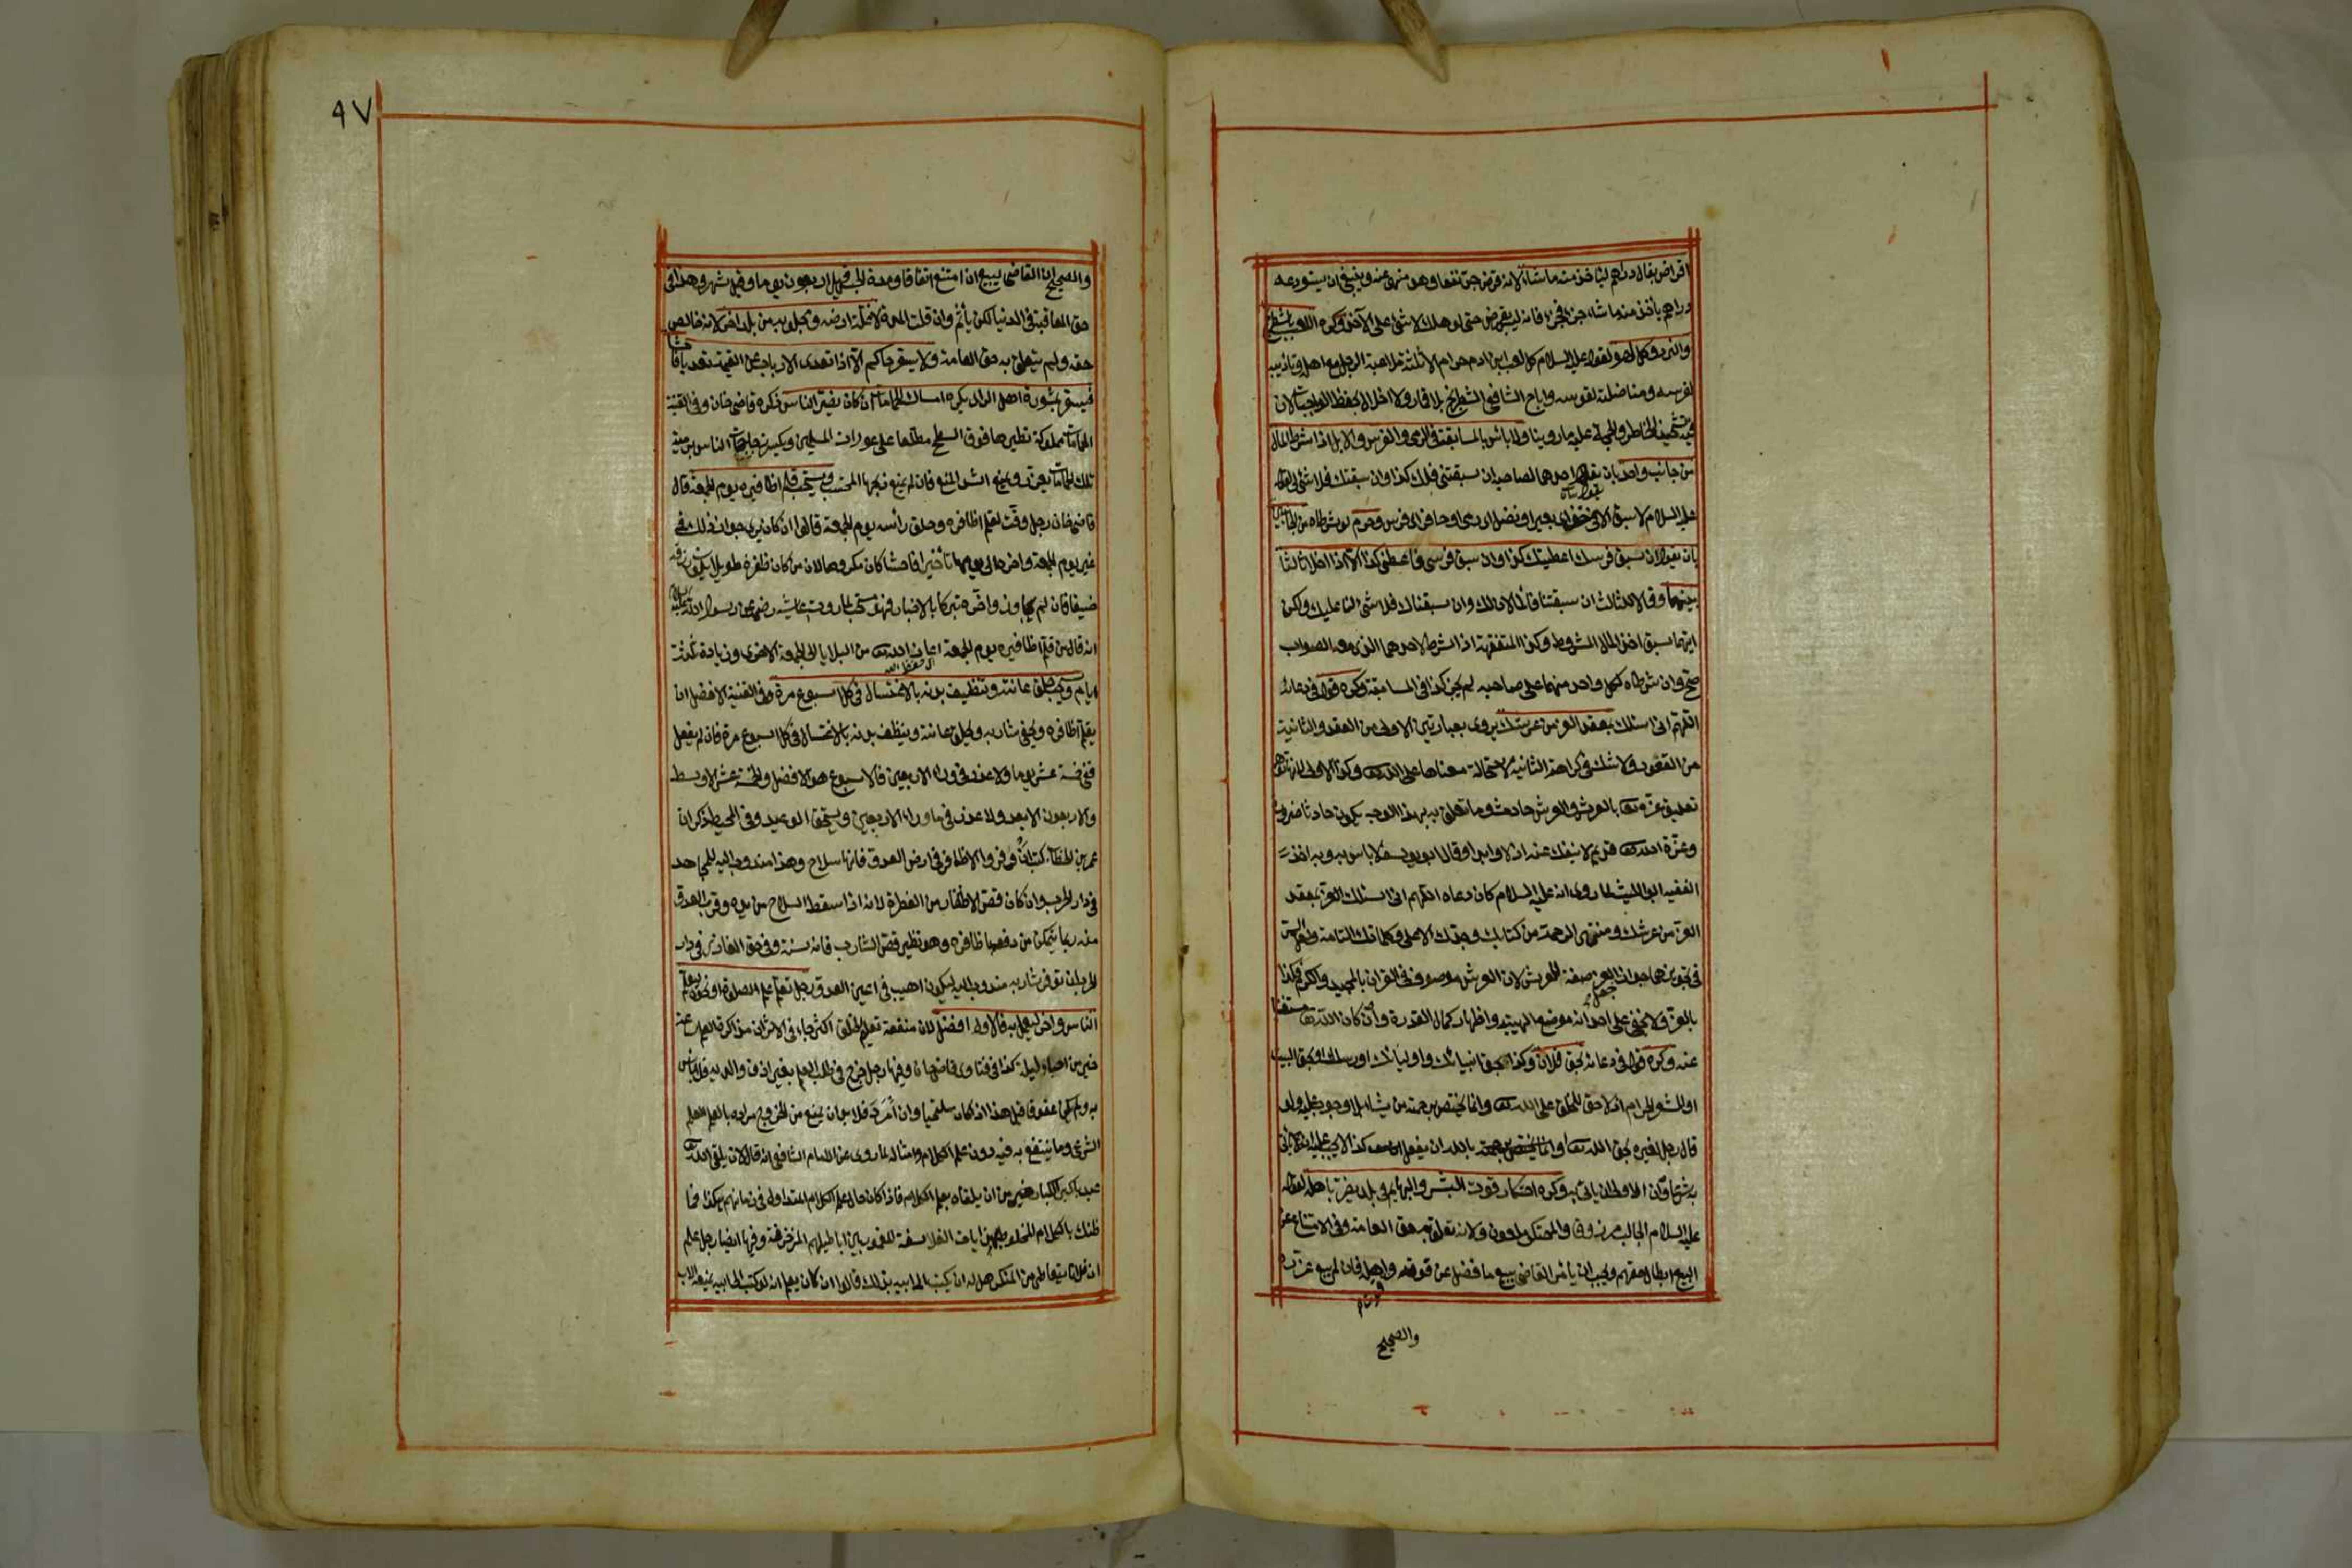 اقراض بقال دراهم ليأخذ منه ما شاء لانه قرض جر نفعا وهو منهى عنه وينبغى ان يستودعه
دراهم يأخذ منه ما شاء جزأ فجزأ فانه ليس بقرض حتى لو هلك لا شئ على الآخذ وكره اللعب بالشطرنج
والنرد وكل لهو لقوله عليه السلام كل لعب ابن ادم حرام الا ثلثة ملاعبة الرجل مع اهله وتأديبه
لفرسه ومناضلته لقوسه واباح الشافعى الشطرنج بلا قمار ولا اخلال بحفظ الواجبات لان
فيه تشحيذ الخاطر والحجة عليه ما روينا ولا بأس بالمسابقة فى الرمى والفرس والابل اذا شرط المال
من جانب واحد بان يقول احدهما لصاحبه ان سبقتنى فلك كذا وان سبقتك فلا شئ لى لقوله
عليه السلام لا سبق الا فى خف اى بعير او نصل اى رمى او حافر اى فرس وحرم لو شرطاه من الجانبين
بان يقول ان سبق فرسك اعطيتك كذا وان سبق فرسى فاعطنى كذا الا اذا ادخلا ثالثا
بينهما وقالا للثالث ان سبقتنا فالمالان لك وان سبقناك فلا شئ لنا عليك ولكن
ايهما سبق اخذ المال المشروط وكذا المتفقهة اذا شرط لاحدهما الذى معه الصواب
صح وان شرطاه لكل واحد منهما على صاحبه لم يجز كذا فى المسابقة وكره قوله فى دعائه
اللهم انى اسئلك بمعقد العز من عرشك يروى بعبارتين الاولى من العقد والثانية
من القعود ولا شك فى كراهة الثانية لاستحالة معناها على الله تعالى وكذا الاولى لانه يوهم
تعليق عزه تعالى بالعرش والعرش حادث وما تعلق به بهذا الوجه يكون حادثا ضرورة
وعزة الله تعالى قديم لا ينفك عنه ازلا وابدا وقال ابو يوسف لا باس به وبه اخذ
الفقيه ابو الليث لما روى انه عليه السلام كان دعاه اللهم انى اسئلك العز بمعقد
العز من عرشك ومنتهى الرحمة من كتابك وجدك الاعلى وكلماتك التامة ولعل السر
فى تجويزهما جواز جعل العز صفة للعرش لان العرش موصوف فى القرآن بالمجيد والكرم فكذا
بالعز ولا يخفى على احد انه موضع الهيبة واظهار كمال القدرة وان كان الله تعالى مستغنيا
عنه وكره قوله فى دعائه بحق فلان وكذا بحق انبيائك واوليائك او رسلك او بحق البيت
او المشعر الحرام اذ لا حق للخلق على الله تعالى وانما يختص برحمته من يشاء بلا وجوب عليه ولو
قال رجل لغيره بحق الله تعالى او بالله ان يفعل كذا لا يجب عليه ان يأتى
به شرعا وان الاولى ان يأتى به وكره احتكار قوت البشر والبهايم فى بلد يضر باهله لقوله
عليه السلام الجالب مرزوق والمحتكر ملعون ولانه تعلق به حق العامة وفى الامتناع عن
البيع ابطال حقهم ويجب ان يأمر القاضى ببيع ما فضل عن قوته وقوت اهله فان لم يبع عزره
والصحيح
٩٧
والصحيح ان القاضى يبيع ان امتنع اتفاقا ومدة الحبس قيل اربعون يوما وقيل شهر وهذا فى
حق المعاقبة فى الدنيا لكن يأثم وان قلت المدة لا غلة ارضه ومجلوبه من بلد اخر لانه خالص
حقه ولم يتعلق به حق العامة ولا يسعر حاكم الا اذا تعدى الارباب عن القيمة تعديا فاحشا
فيسعر بمشورة اهل الراى يكره امساك الحمامات ان كان يضر الناس ذكره قاضى خان وفى القنية
الحمامات مملوكة تطيرها فوق السطح مطلعا على عورات المسلمين ويكسر زجاجات الناس برميه
تلك الحمامات يعزر ويمنع اشد المنع فان لم يمتنع ذبحها المحتسب ويستحب قلم اظافيره يوم الجمعة قال
قاضى خان رجل وقت لقلم اظافره وحلق رأسه يوم الجمعة قالوا ان كان يرى جواز ذلك فى
غير يوم الجمعة واخره الى يومها تأخيرا فاحشا كان مكروها لان من كان ظفره طويلا يكون رزقه
ضيقا فان لم يجاوز واخره تبركا بالاخبار فهو مستحب لما روت عائشة رضى عن رسول الله عليه السلام
انه قال من قلم اظافيره يوم الجمعة اعاذه الله تعالى من البلايا الى الجمعة الاخرى وزيادة ثلثة
ايام ويجب حلق عانته وتنظيف بدنه بالاغتسال فى كل اسبوع مرة وفى القنية الافضل ان
يقلم اظافره ويحفى شاربه ويحلق عانته وينظف بدنه بالاغتسال فى كل اسبوع مرة فان لم يفعل
ففى خمسة عشر يوما ولا عذر فى وراء الاربعين فالاسبوع هو الافضل والخمسة عشر الاوسط
والاربعون الابعد ولا عذر فى ما وراء الاربعين ويستحق الوعيد وفى المحيط ذكر ان
عمر بن الخطاب كتب ان وفروا الاظافر فى ارض العدو فانها سلاح وهذا مندوب اليه للمجاهد
فى دار الحرب وان كان قص الاظفار من الفطرة لانه اذا سقط السلاح من يده وقرب العدو
منه ربما يتمكن من دفعه باظافره وهو نظير قص الشارب فانه سنة وفى حق الغازى فى دار
الحرب ان توفر شاربه مندوب اليه ليكون اهيب فى اعين العدو رجل تعلم علم الصلوة او نحوه ليعلم
الناس واخر ليعمل به فالاول افضل لان منفعة تعليم الخلق اكثر جاء فى الاثر ان مذاكرة العلم ساعة
خير من احياء ليلة كذا فى فتاوى قاضيخان وفيها رجل خرج فى طلب العلم بغير اذن والديه فلا بأس
به ولم يكن عقوقا قيل هذا اذا كان ملتحيا وان امرد فلابيه ان يمنع من الخروج مراده بالعلم العلم
الشرعى وما ينتفع به فيه دون علم الكلام وامثاله لما روى عن الامام الشافعى انه قال لان يلقى الله تعالى
عبد باكبر الكبائر خير من ان يلقاه بعلم الكلام فاذا كان حال علم الكلام المتداول فى زمانهم هكذا فما
ظنك بالكلام المخلوط بهذيانات الفلاسفة المغمور بين اباطيلهم المزخرفة وفيها ايضا رجل علم
ان فلانا يتعاطى من المنكر هل له ان يكتب الى ابيه بذلك قالوا ان كان يعلم انه لو كتب الى ابيه يمنعه الاب